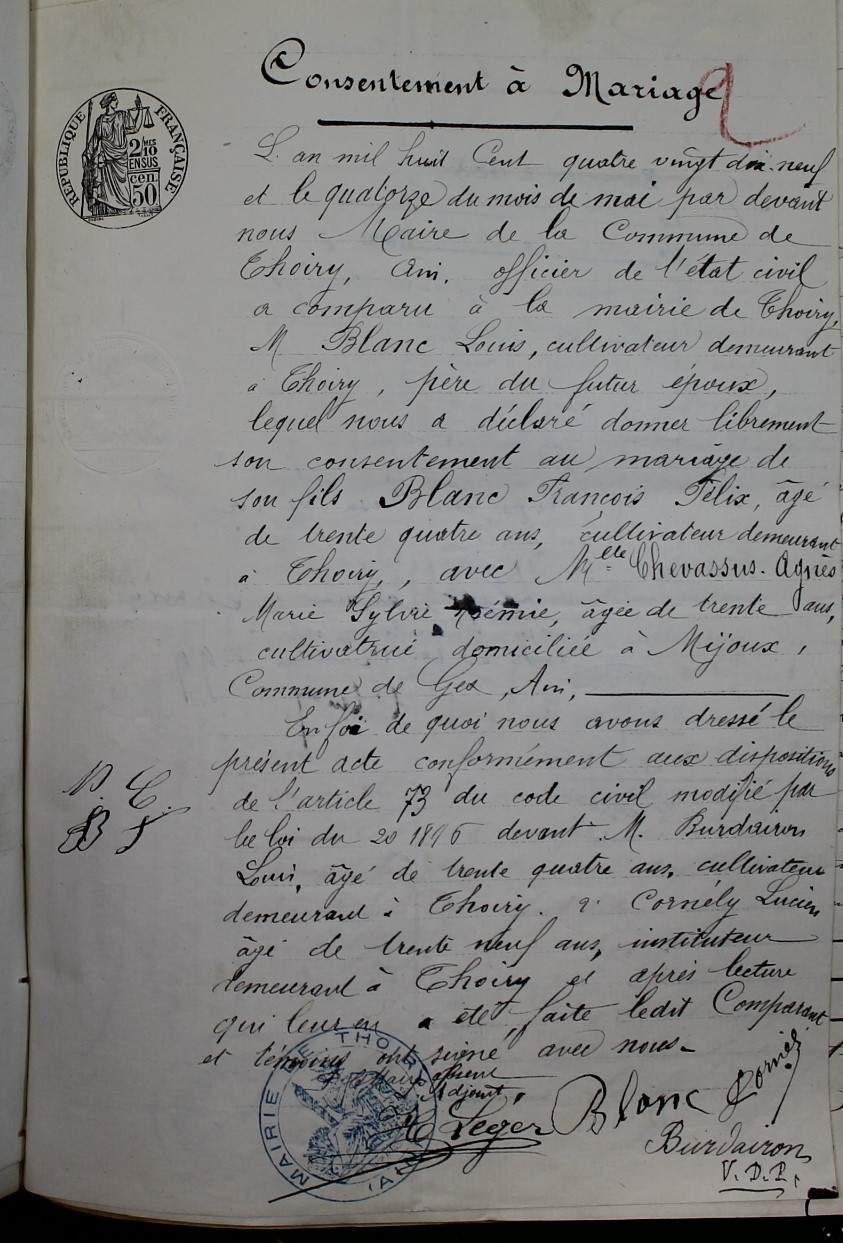 Consentement à Mariage
2
RÉPUBLIQUE FRANÇAISE
2/10 EN SUS
cen. 50
L'an mil huit Cent quatre vingt dix neuf
et le quatorze du mois de mai par devant
nous Maire de la Commune de
Thoiry, Ain, officier de l'état civil
a comparu à la mairie de Thoiry,
M Blanc Louis, cultivateur demeurant
à Thoiry, père du futur époux,
lequel nous a déclaré donner librement
son consentement au mariage de
son fils Blanc François Félix, âgé
de trente quatre ans, cultivateur demeurant
à Thoiry, avec Melle Chevassus-Agnès
Marie Sylvie Noémie, âgée de trente ans,
cultivatrice domiciliée à Mijoux,
Commune de Gex, Ain,
En foi de quoi nous avons dressé le
présent acte conformément aux dispositions
de l'article 73 du code civil modifié par
le loi du 20 1896 devant M. Burdairon
Louis, âgé de trente quatre ans, cultivateur
demeurant à Thoiry. 2° Cornély Lucien
âgé de trente neuf ans, instituteur
demeurant à Thoiry et après lecture
qui leur en a été faite ledit Comparant
et témoins ont signé avec nous.
B
absent
Adjoint,
Leger Blanc Cornély
Burdairon
V.D.P.
MAIRIE DE THOIRY (AIN)